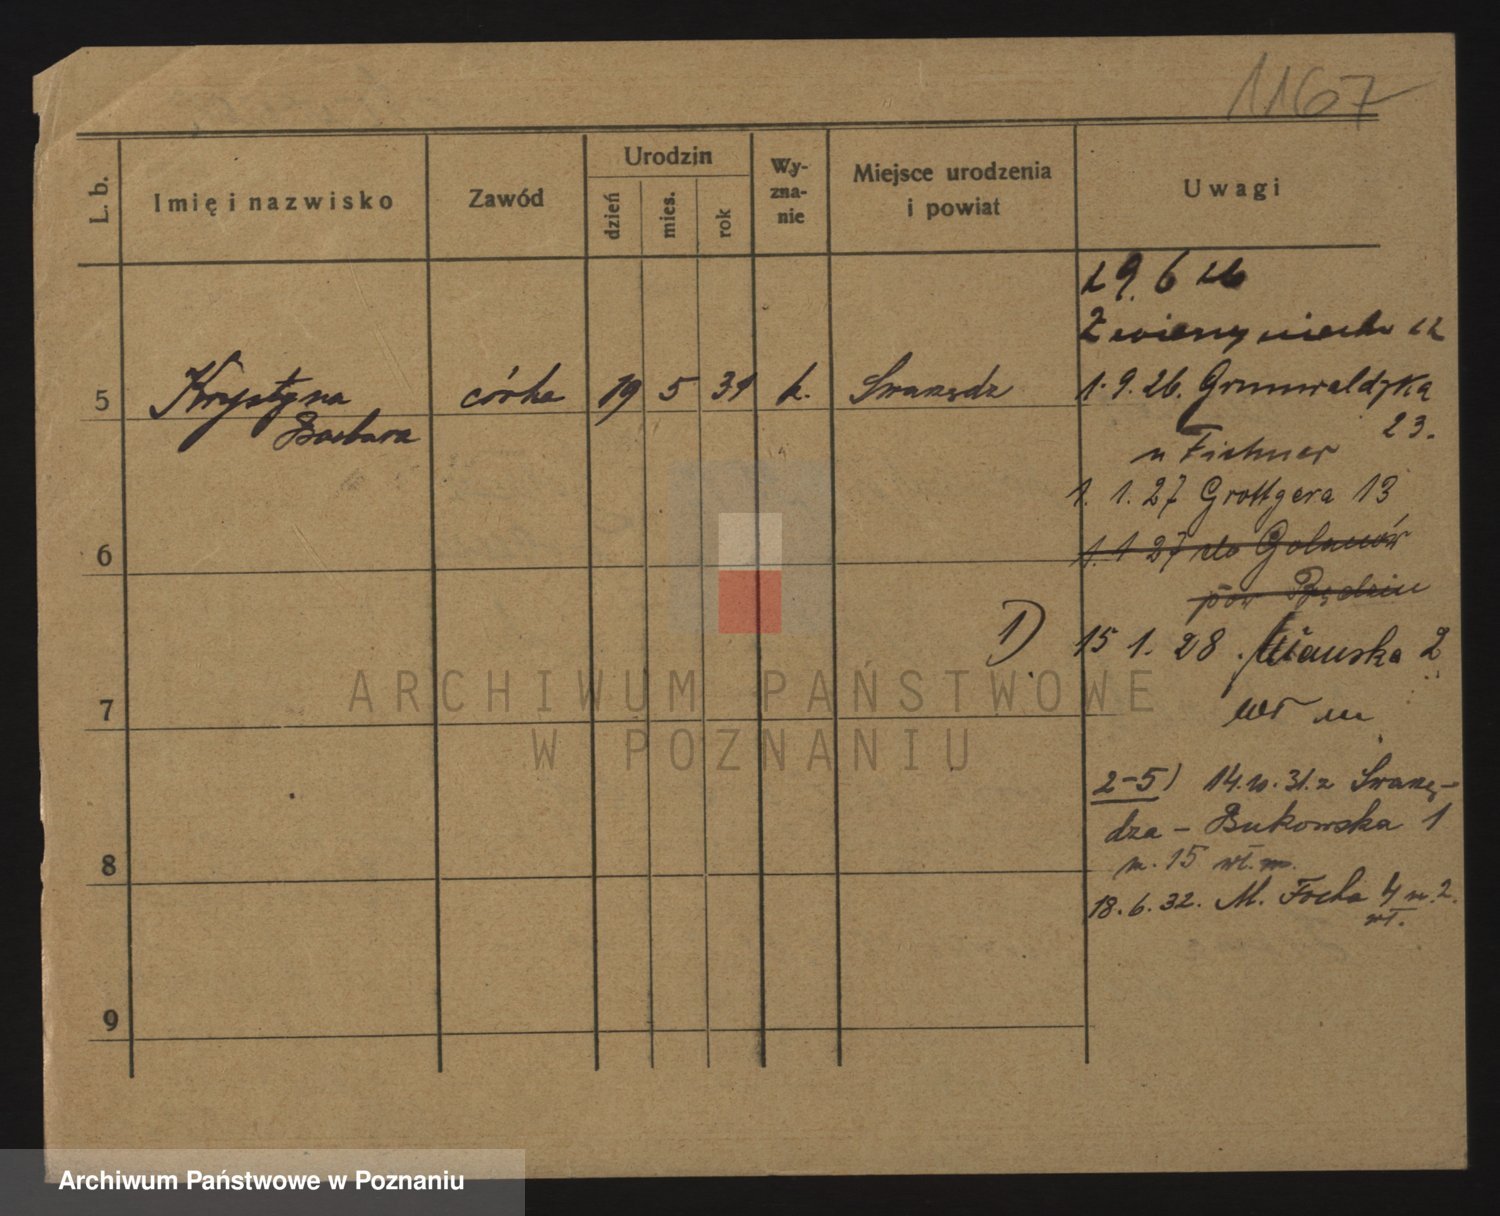 1167
L. b.
Imię i nazwisko
Zawód
Urodzin
dzień
mies.
rok
Wy-
zna-
nie
Miejsce urodzenia
i powiat
Uwagi
29. 6 26
Zwierzyniecka
5 Krystyna córka 19 5 31 k. Swarzędz
Barbara
1. 9. 26. Grunwaldzka
23.
u Fichner
1. 1. 27 Grottgera 13
6
1. 1 27 do Golonów
pow Będzin
1) 15 1. 28. 2
7
2-5) 14. 10. 31. z Swarzę-
dza - Bukowska 1
m. 15 wł. m.
8
18. 6. 32. M. Focha 4 m. 2.
wł.
9
ARCHIWUM PAŃSTWOWE
W POZNANIU
Archiwum Państwowe w Poznaniu